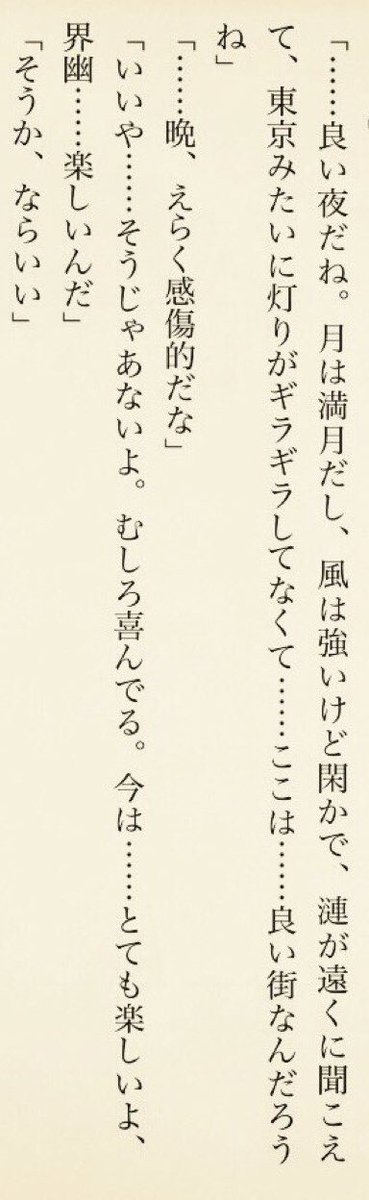 」
「……良い夜だね。月は満月だし、風は強いけど閑かで、漣が遠くに聞こえ
て、東京みたいに灯りがギラギラしてなくて……ここは……良い街なんだろう
ね」
「……晩、えらく感傷的だな」
「いいや……そうじゃあないよ。むしろ喜んでる。今は……とても楽しいよ、
界幽……楽しいんだ」
「そうか、ならいい」